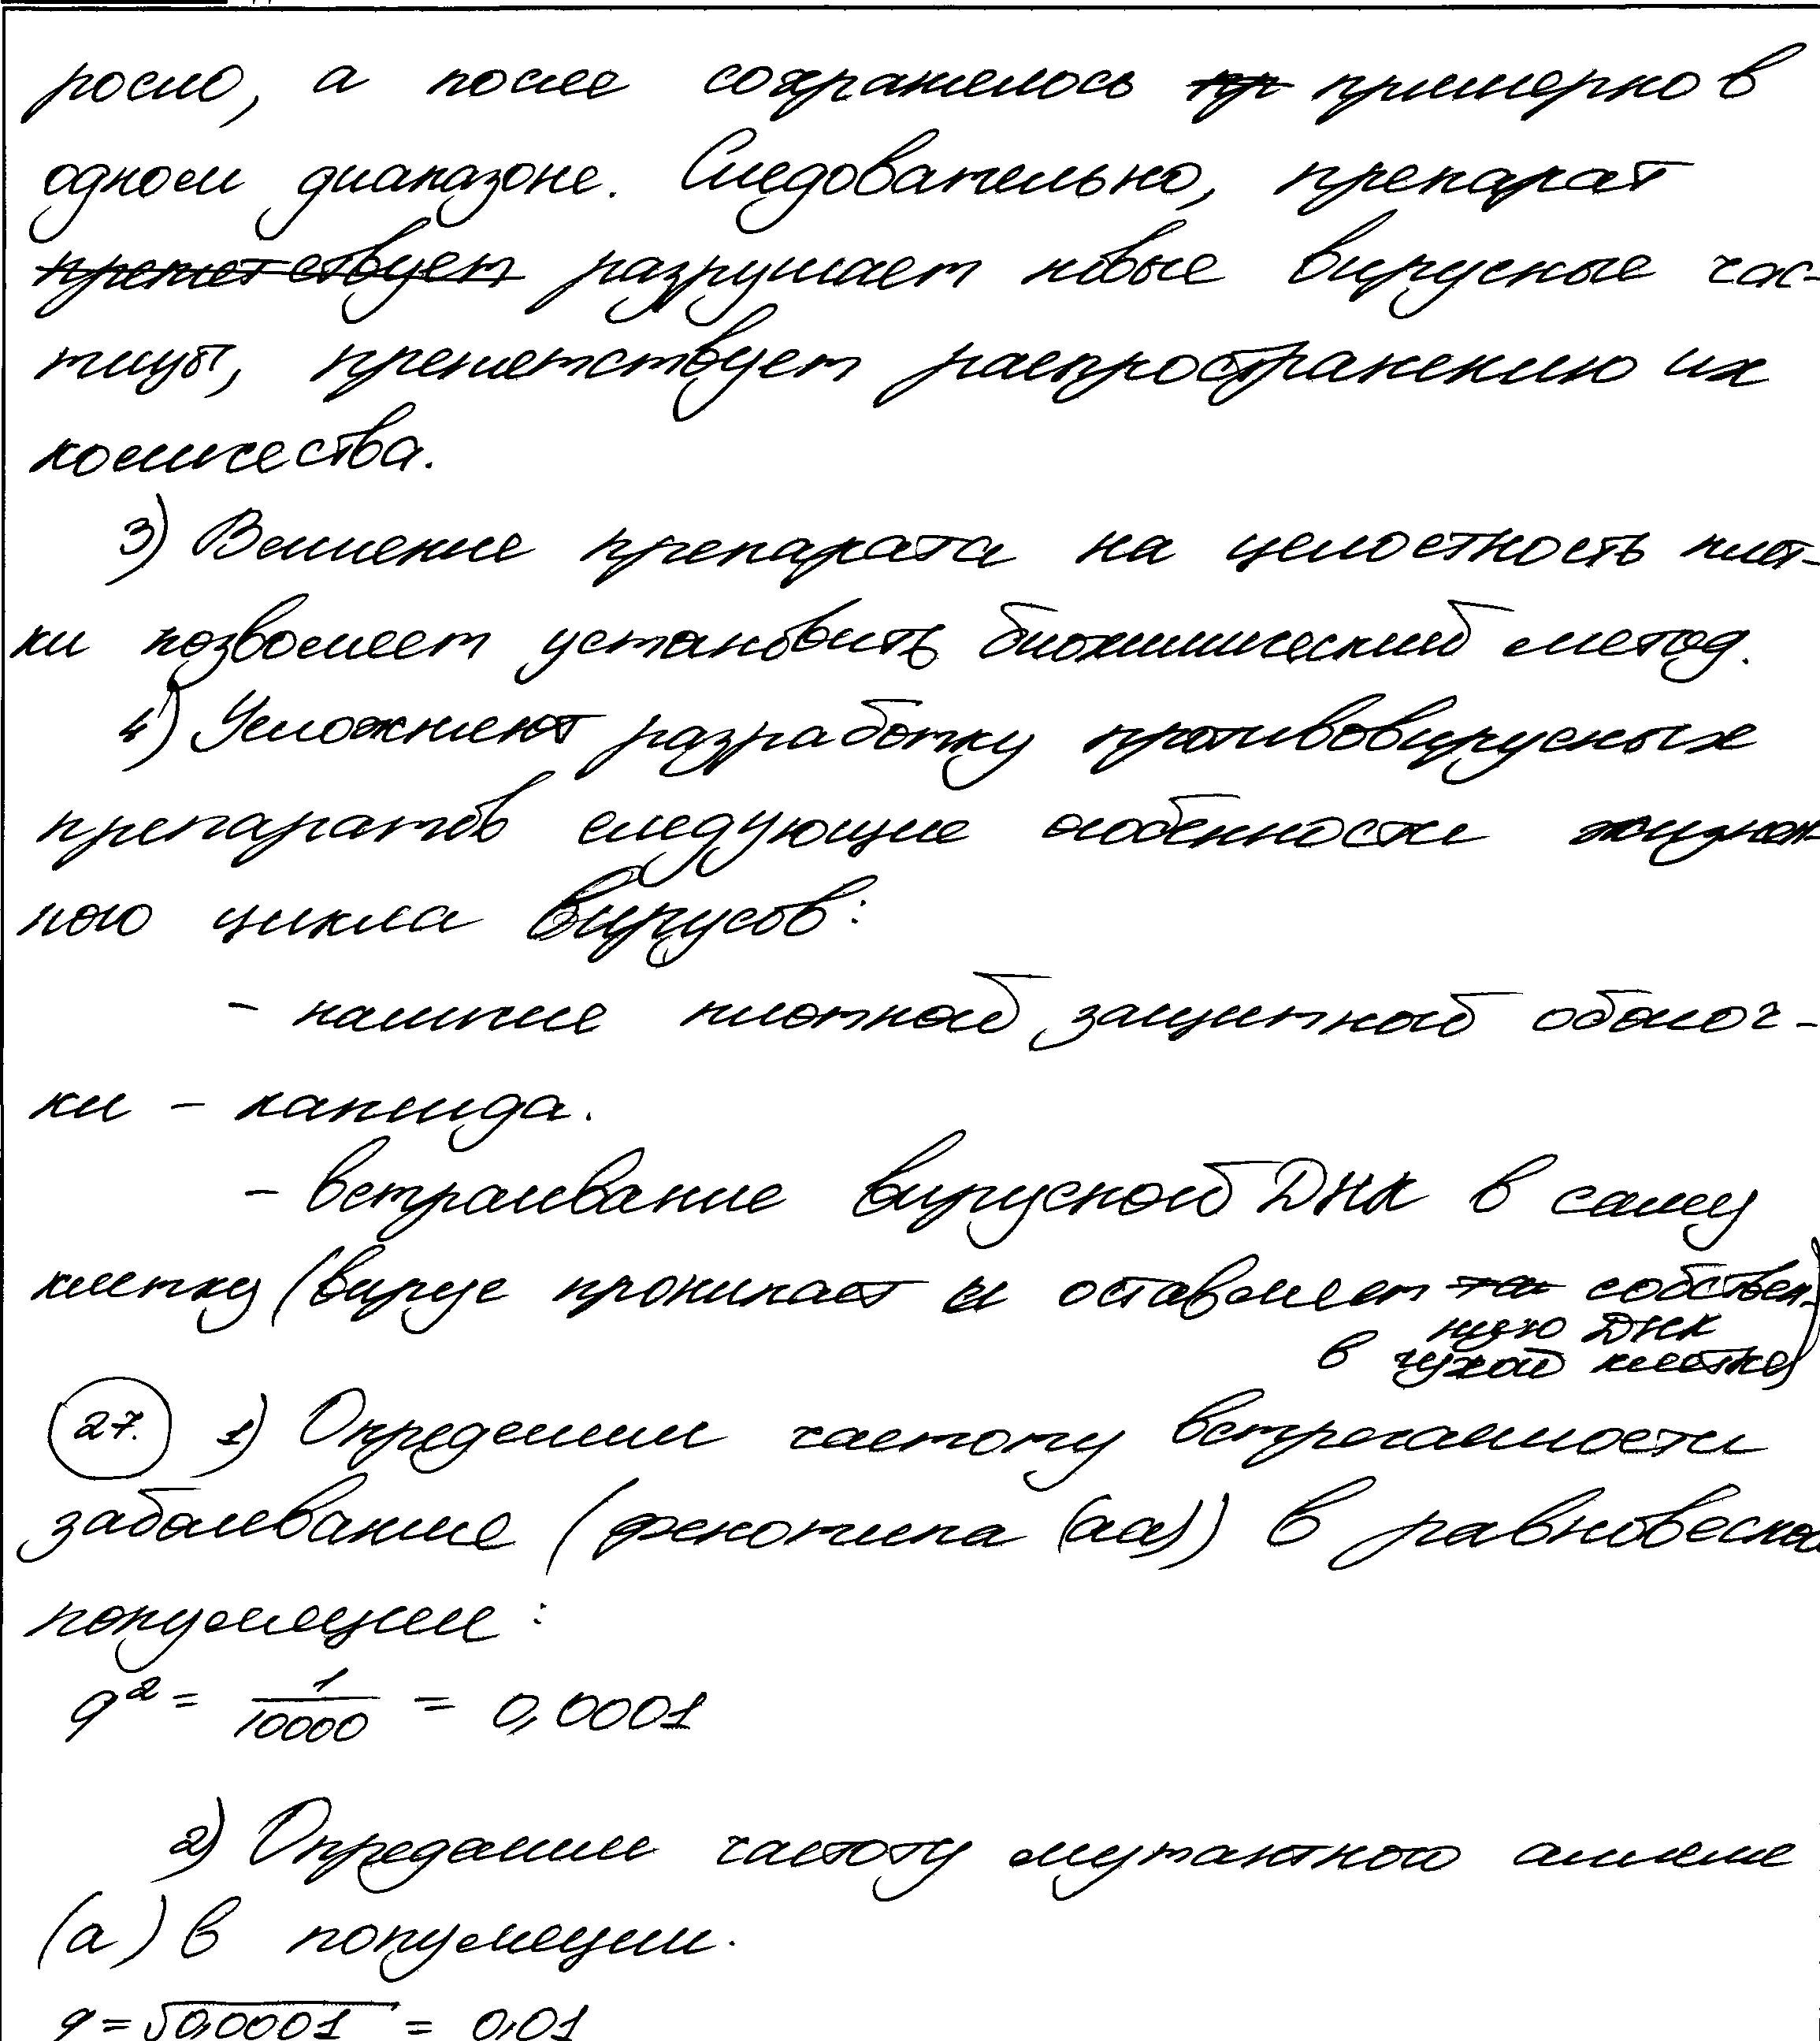 росло, а после сохранялось пр примерно в
одном диапазоне. Следовательно, препарат
препятствует разрушает новые вирусные час-
тицы, препятствует распространению их
количества.
3) Влияние препарата на целостность клет-
ки позволяет установить биохимический метод.
4) Усложняют разработку противовирусных
препаратов следующие особенности жизнен-
ного цикла вирусов:
- наличие плотной защитной оболоч-
ки - капсида.
- встраивание вирусной ДНК в саму
клетку (вирус проникает и оставляет собствен-
ную ДНК
в чужой клетке)
27. 1) Определим частоту встречаемости
заболевание (фенотипа (аа)) в равновесной
популяции:
q² = 1/10000 = 0,0001
2) Определим частоту мутантного аллеля
(а) в популяции.
q = √0,0001 = 0,01